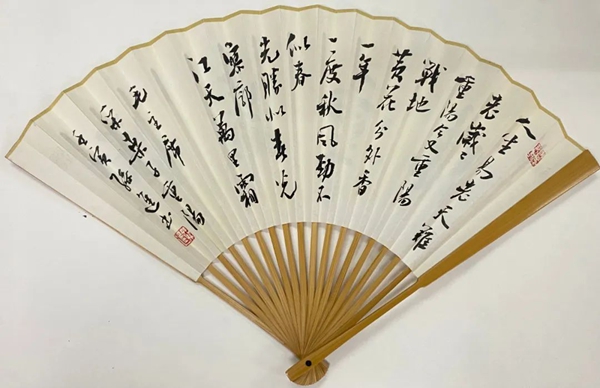 人生易老天難
老歲々
重陽今又重陽
戰地
黄花分外香
一年
一度秋風勁不
似春
光勝似春光
寥廓
江天萬里霜
毛主席
采桑子重陽
壬寅